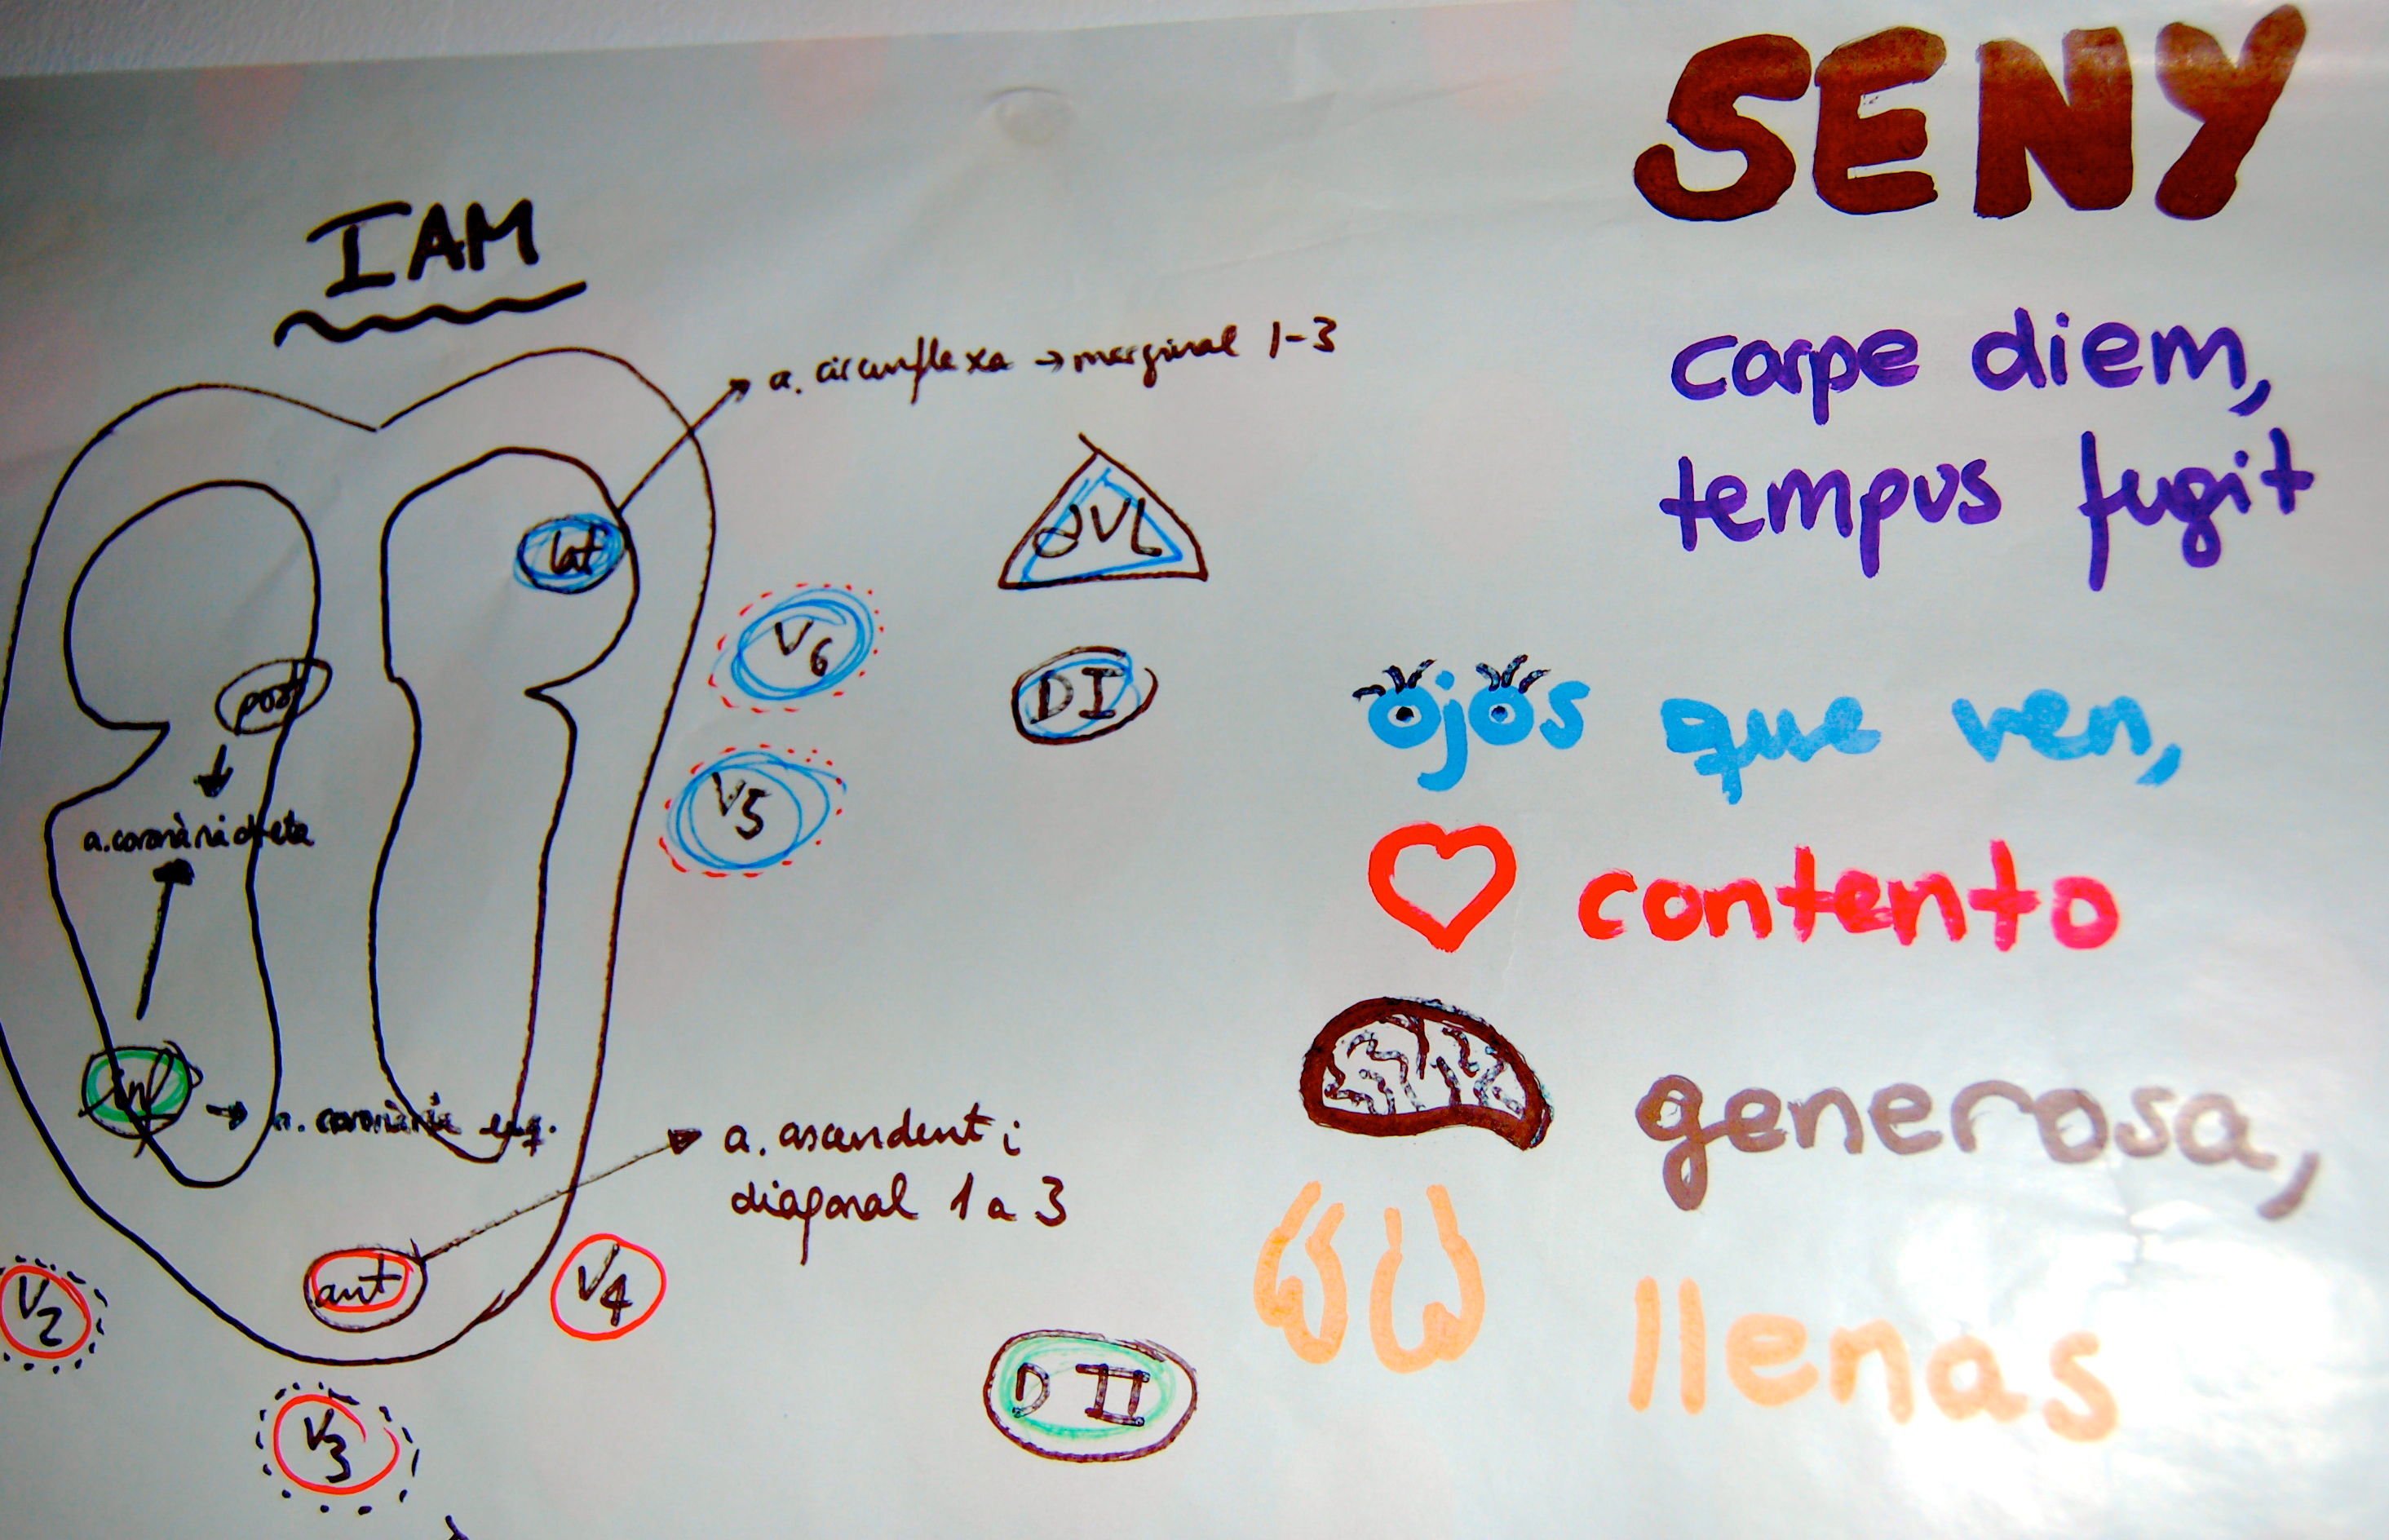 IAM
a. circunflexa → marginal 1-3
lat
aVL
V6
DI
post
V5
a. coronària dreta
inf
a. coronària esq.
a. ascendent i
diagonal 1 a 3
ant
V4
V2
D II
V3
SENY
carpe diem,
tempus fugit
ojos que ven,
contento
generosa,
llenas